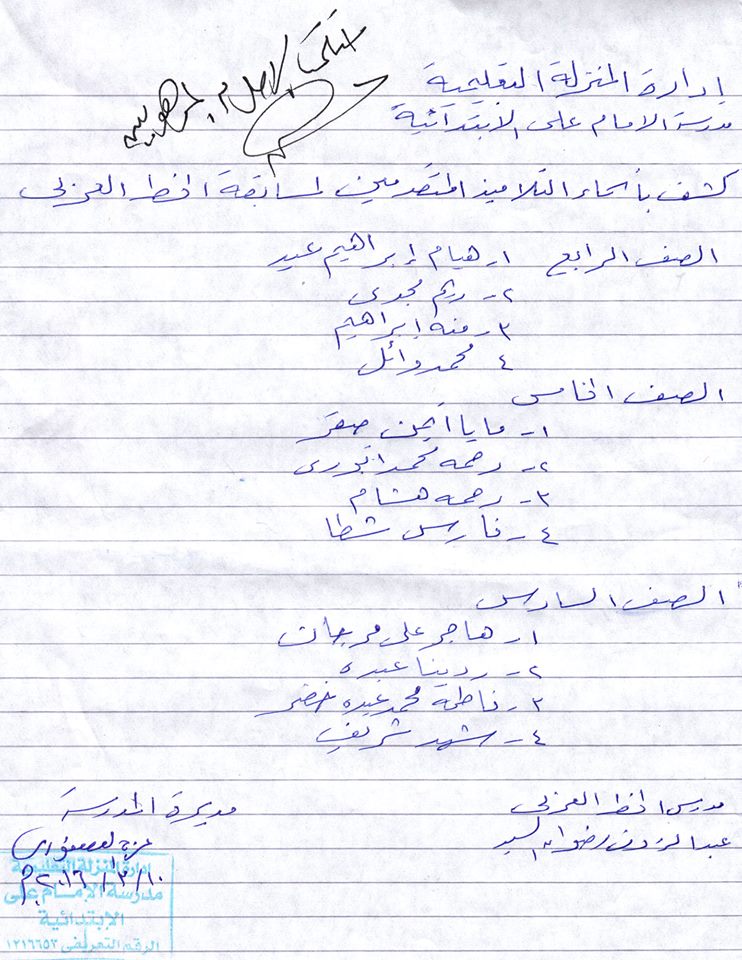 استلمت الأصل
إدارة المنزلة التعليمية
مدرسة الامام على الابتدائية
كشف بأسماء التلاميذ المتقدمين لمسابقة الخط العربى
الصف الرابع ١- هيام إبراهيم عيد
٢- ريم مجدى
٣- منه إبراهيم
٤ محمد وائل
الصف الخامس
١- مايا أيمن صقر
٢- رحمه محمد
٣- رحمه هشام
٤- فارس شطا
الصف السادس
١- هاجر على فرحات
٢- ردينا عبده
٣- فاطمة محمد عبده خضر
٤- شهد شريف
مدرس الخط العربى
عبد الرؤوف رضوان السيد
مديرة المدرسة
عزة
٢٠١٦/٣/١٠م
إدارة المنزلة التعليمية
مدرسة الإمام على
الإبتدائية
الرقم التعريفى ١٢١٦٦٥٣